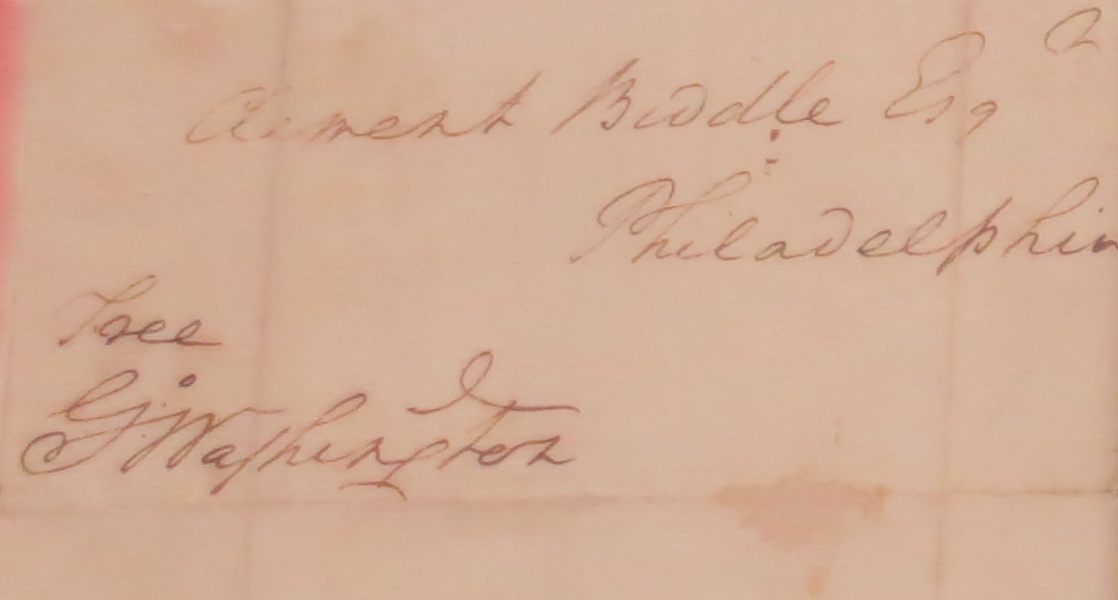 Clement Biddle Esqr
Philadelphia
Free
G:Washington